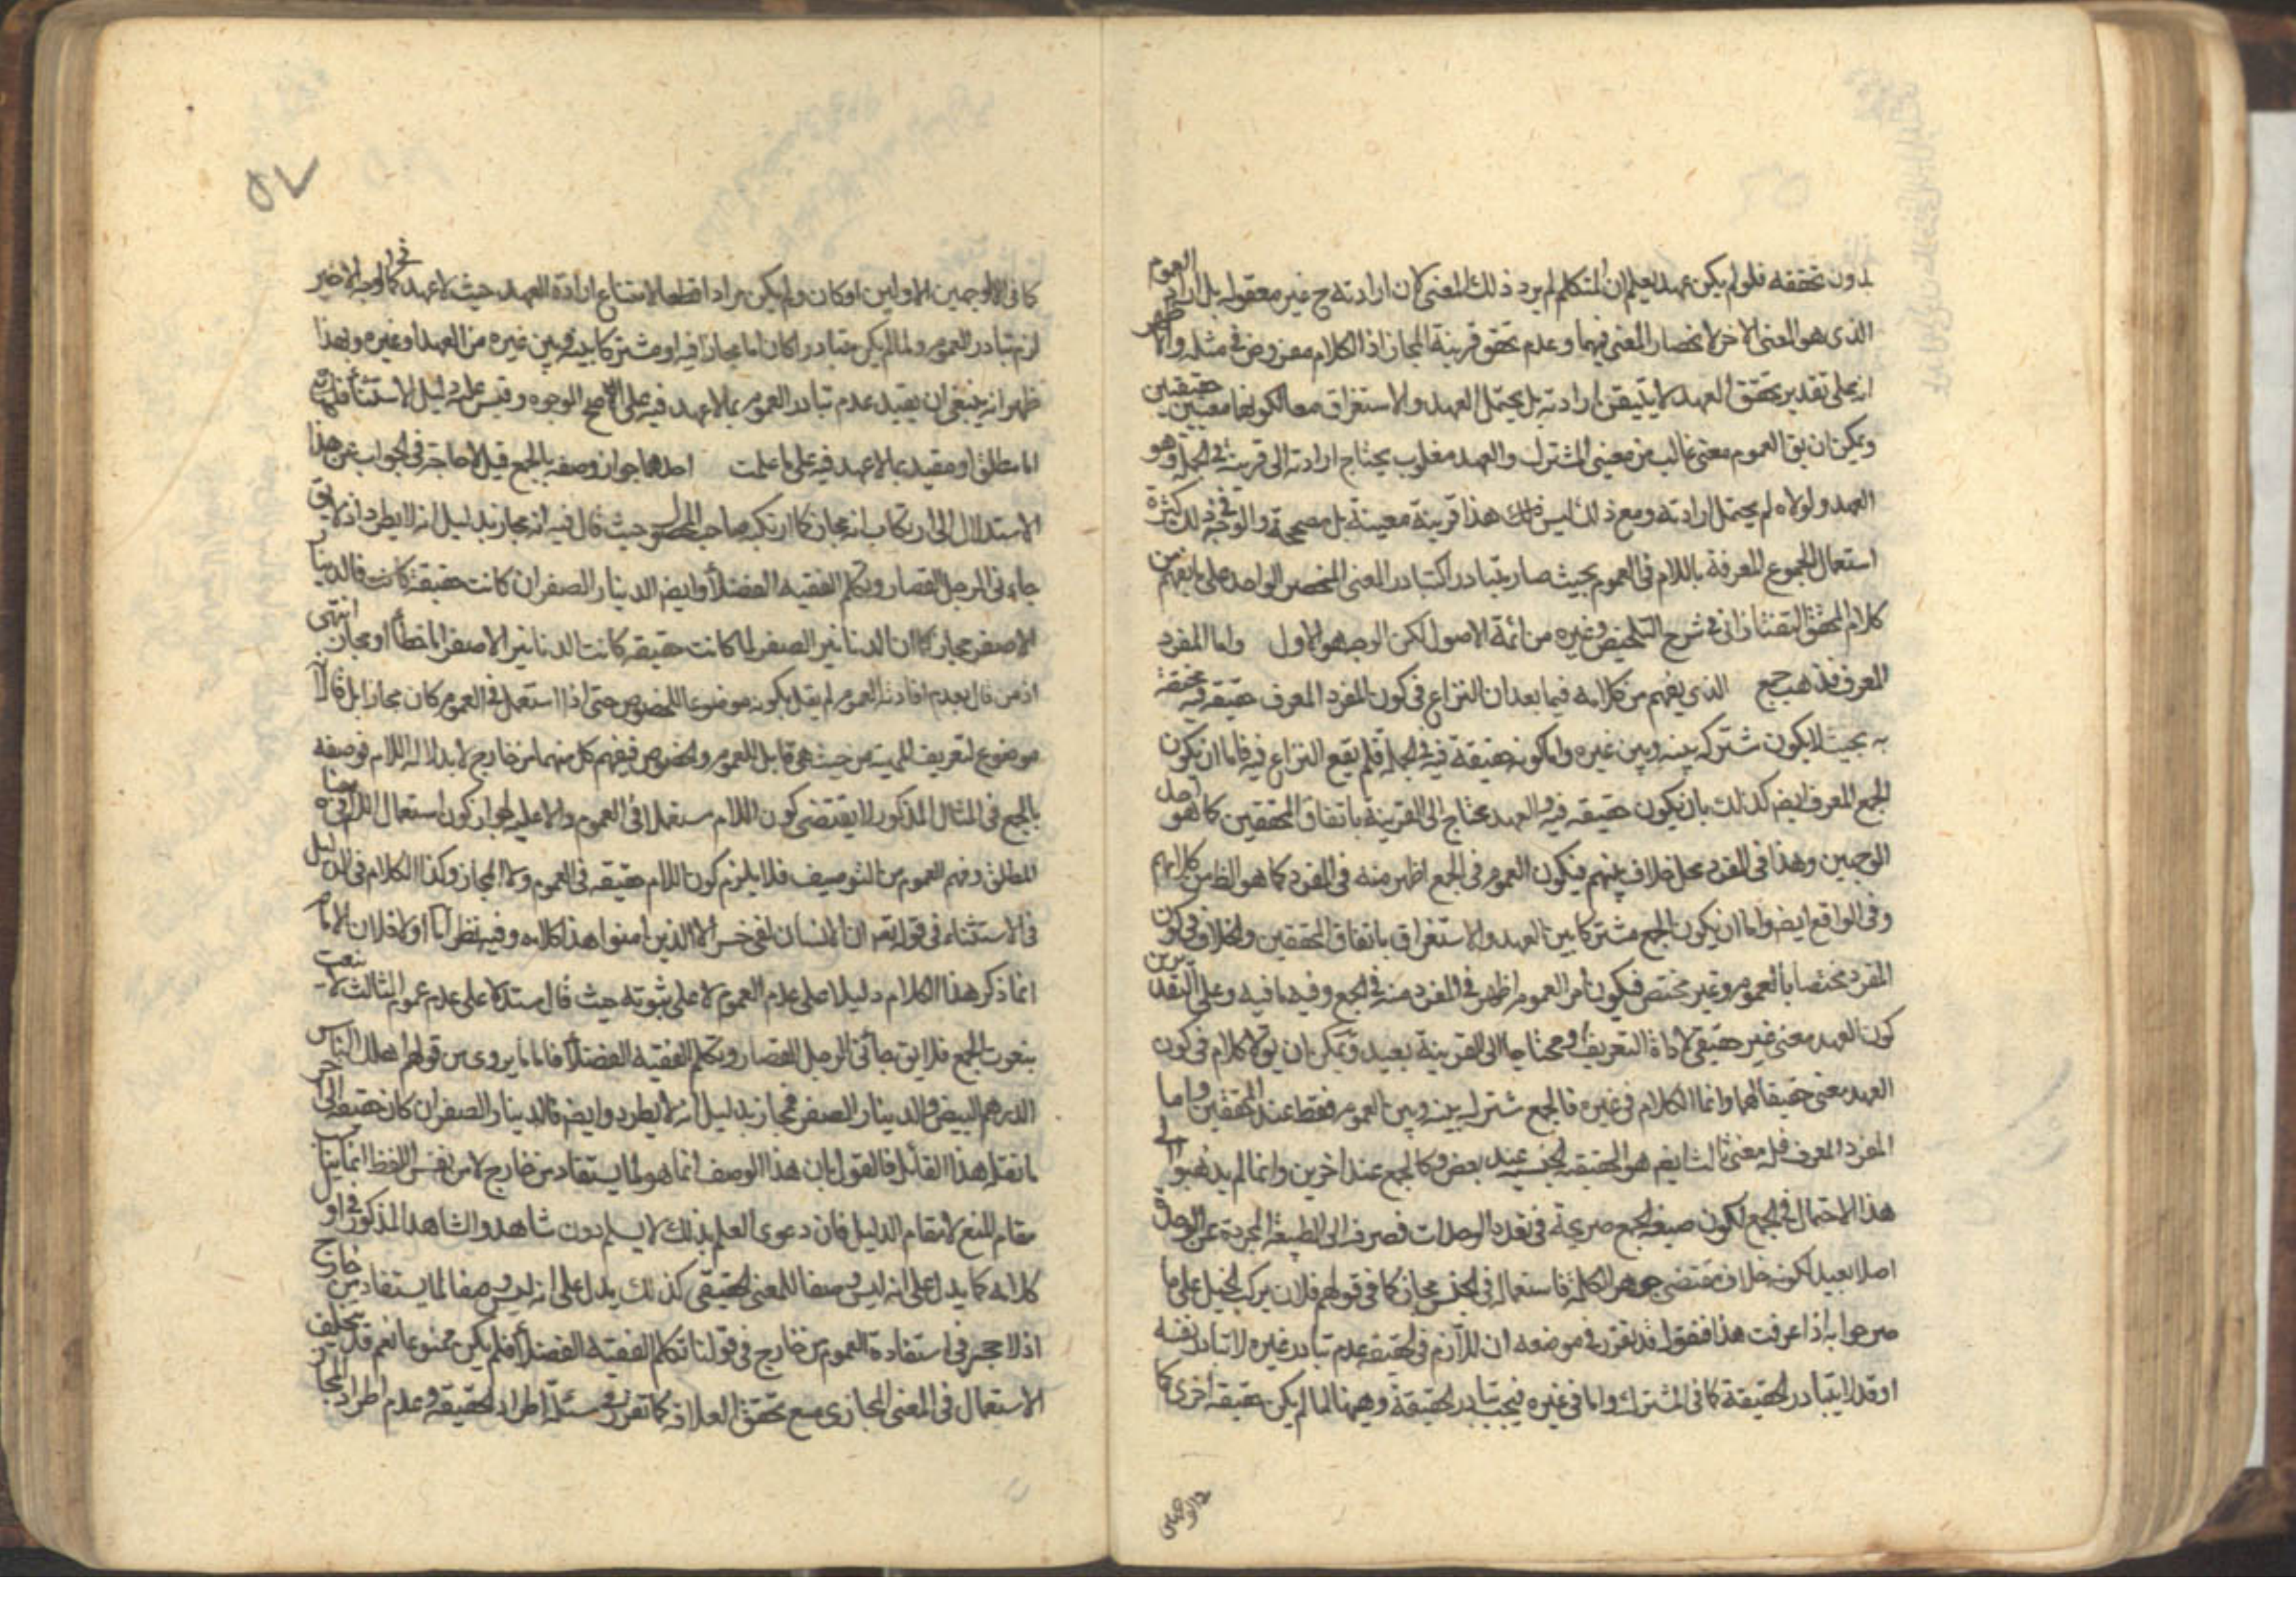 بدون تحققه فلو لم يكن عهد يعلم ان المتكلم لم يرد ذلك المعنى لان ارادته ح غير معقولة بل اراد العموم
الذى هو المعنى الاخر لانحصار المعنى فيهما وعدم تحقق قرينة المجاز اذ الكلام مفروض فى مثله واما
انه على تقدير تحقق العهد لا يتيقن ارادته بل يحتمل العهد والاستغراق معا لكونهما معنيين حقيقيين
ويمكن ان يق العموم معنى غالب من معنيى المشترك والعهد مغلوب يحتاج ارادته الى قرينة فى الجملة وهو
العهد ولولاه لم يحتمل ارادته ومع ذلك ليس هذا قرينة معينة بل مصححة والوجه فى ذلك كثرة
استعمال الجموع المعرفة باللام فى العموم بحيث صار يتبادر كتبادر المعنى المنحصر الواحد على ما يفهم من
كلام المحقق التفتازانى فى شرح التلخيص وغيره من ائمة الاصول لكن الوجه هو الاول واما المفرد
المعرف فذهب جمع الذى يفهم من كلامه فيما بعد ان النزاع فى كون المفرد المعرف حقيقة فيه مختصة
به بحيث لا يكون مشتركا بينه وبين غيره واما كونه حقيقة فيه فى الجملة فلم يقع النزاع فيه فاما ان يكون
الجمع المعرف ايضا كذلك بان يكون حقيقة فيه والعهد محتاج الى القرينة باتفاق المحققين كما هو احد
الوجهين وهذا فى المفرد محل خلاف بينهم فيكون العموم فى الجمع اظهر منه فى المفرد كما هو الظ من كلامهم
وفى الواقع ايضا واما ان يكون الجمع مشتركا بين العهد والاستغراق باتفاق المحققين والخلاف فى كون
المفرد مختصا بالعموم وغير مختص فيكون امر العموم اظهر فى المفرد منه فى الجمع وفيه ما فيه وعلى التقديرين
كون العهد معنى غير حقيقى لاداة التعريف ومحتاجا الى القرينة بعيد ويمكن ان يق لا كلام فى كون
العهد معنى حقيقيا لهما وانما الكلام فى غيره فالجمع مشترك بينه وبين العموم فقط عند المحققين واما
المفرد المعرف فله معنى ثالث ايضا هو الحقيقة الجنسية عند بعض وكالجمع عند اخرين وانما لم يذهبوا الى
هذا الاحتمال فى الجمع لكون صيغة الجمع صريحة فى تعدد الوحدات فصرفه الى الطبيعة المجردة عن الوحدة
اصلا بعيد لكونه خلاف مقتضى جوهر الكلمة فاستعماله فى الجنس مجاز كما فى قولهم فلان يركب الخيل على ما
صرحوا به اذا عرفت هذا فنقول قد تقرر فى موضعه ان اللازم فى الحقيقة عدم تبادر غيره لا تبادر نفسه
اذ قد لا يتبادر الحقيقة كما فى المشترك واما فى غيره فيجب تبادر الحقيقة وههنا لما لم يكن حقيقة اخرى كما
فى الوجهين
٥٧
كما فى الوجهين الاولين او كان ولم يكن مرادا قطعا لامتناع ارادة العهد حيث لا عهد كما فى الوجه الاخير
لزم تبادر العموم ولما لم يكن متبادرا كان اما مجازا فيه او مشتركا بينه وبين غيره من العهد او غيره وبهذا
ظهر انه ينبغى ان يقيد عدم تبادر العموم بما لا عهد فيه على الوجوه وقس عليه دليل الاستثناء فانه
اما مطلق او مقيد بما لا عهد فيه على ما علمت احدهما جواز وصفه بالجمع قيل لا حاجة فى الجواب عن هذا
الاستدلال الى ارتكاب انه مجاز كما ارتكبه صاحب المحصول حيث قال فيه انه مجاز بدليل انه لا يطرد اذ لا يق
جاءنى الرجل القصار وتكلم الفقيه الفضلاء وايضا الدينار الصفر ان كانت حقيقة كانت الدينار
الاصفر مجازا كما ان الدنانير الصفر لما كانت حقيقة كانت الدنانير الاصفر اما خطأ او مجازا انتهى
اذ من قال بعدم افادته العموم لم يقل بكونه موضوعا للخصوص حتى اذا استعمل فى العموم كان مجازا بل قال انه
موضوع لتعريف المهية من حيث هى قابل للعموم والخصوص فيفهم كل منهما من خارج لا بدلالة اللام فوصفه
بالجمع فى المثال المذكور لا يقتضى كون اللام مستعملا فى العموم والا عليه لجواز كون استعمال اللام فى معناه
المطلق وفهم العموم من التوصيف فلا يلزم كون اللام حقيقة فى العموم ولا المجاز وكذا الكلام فى الدليل
فى الاستثناء فى قوله تعه ان الانسان لفى خسر الا الذين امنوا هذا كلامه وفيه نظر اما اولا فلان الامام
انما ذكر هذا الكلام دليلا على عدم العموم لا على ثبوته حيث قال مستدلا على عدم عمومه الثالث لا ينعت
بنعوت الجمع فلا يق جاءنى الرجل القصار وتكلم الفقيه الفضلاء فاما ما يروى من قولهم اهلك الناس
الدرهم البيض والدينار الصفر فمجاز بدليل انه لا يطرد وايضا فالدينار الصفر ان كان حقيقة الى اخر
ما نقله هذا القائل فالقول بان هذا الوصف انما هو لما يستفاد من خارج لا من نفس اللفظ انما يناسب
مقام المنع لا مقام الدليل فان دعوى العلم بذلك لا يسلم بدون شاهد والشاهد المذكور فى
كلامه كما يدل على انه ليس وصفا للمعنى الحقيقى كذلك يدل على انه ليس وصفا لما يستفاد من خارج
اذ لا حجر فى استفادة العموم من خارج فى قولنا تكلم الفقيه الفضلاء فلم يكن ممنوعا نعم قد يتخلف
الاستعمال فى المعنى المجازى مع تحقق العلاقة كما تقرر فى مسئلة اطراد الحقيقة وعدم اطراد المجاز